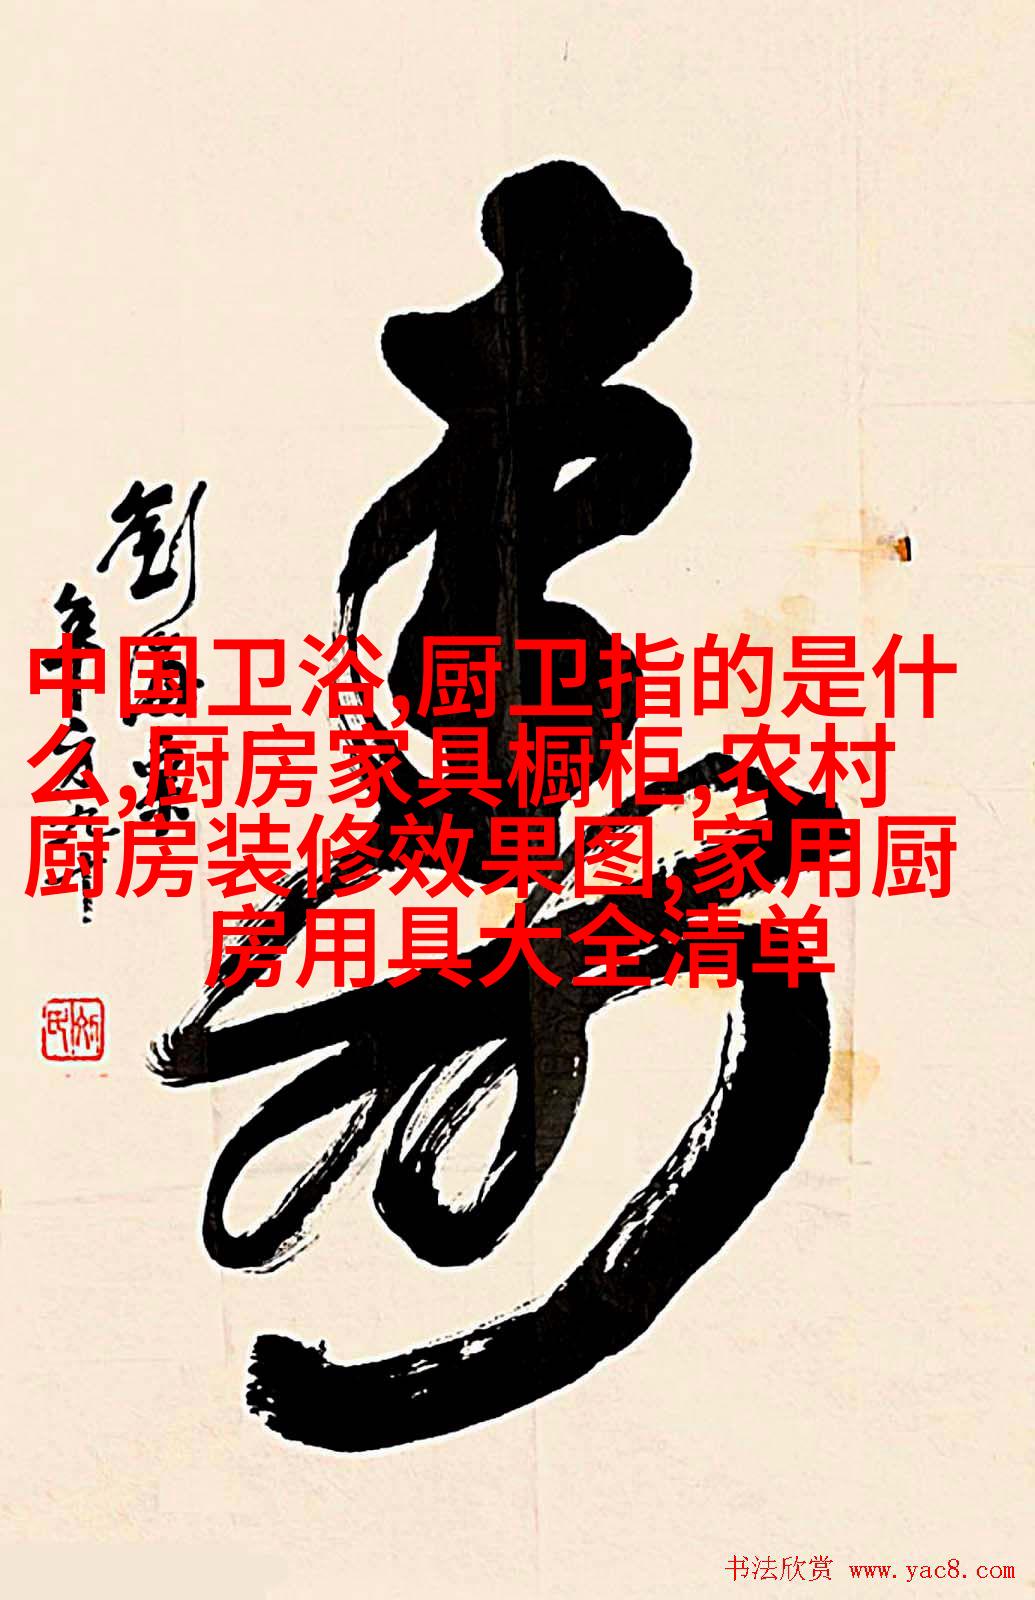 寿
中国卫浴,厨卫指的是什
么,厨房家具橱柜,农村
厨房装修效果图,家用厨
房用具大全清单
书法欣赏 www.yac8.com